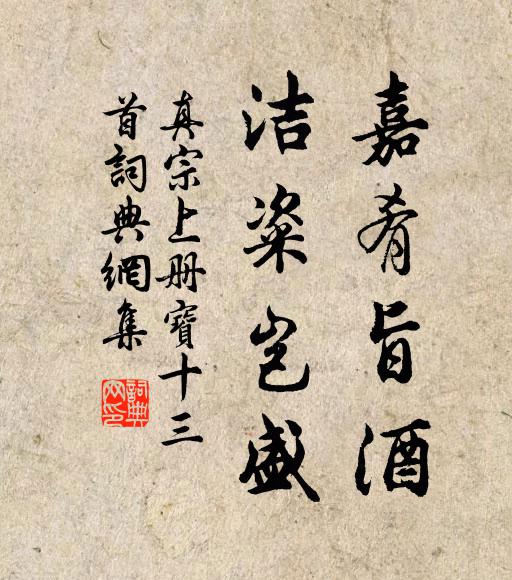 嘉肴旨酒
洁粢岂盛
真宗上册寶十三
首詞典網集
詞典
网印